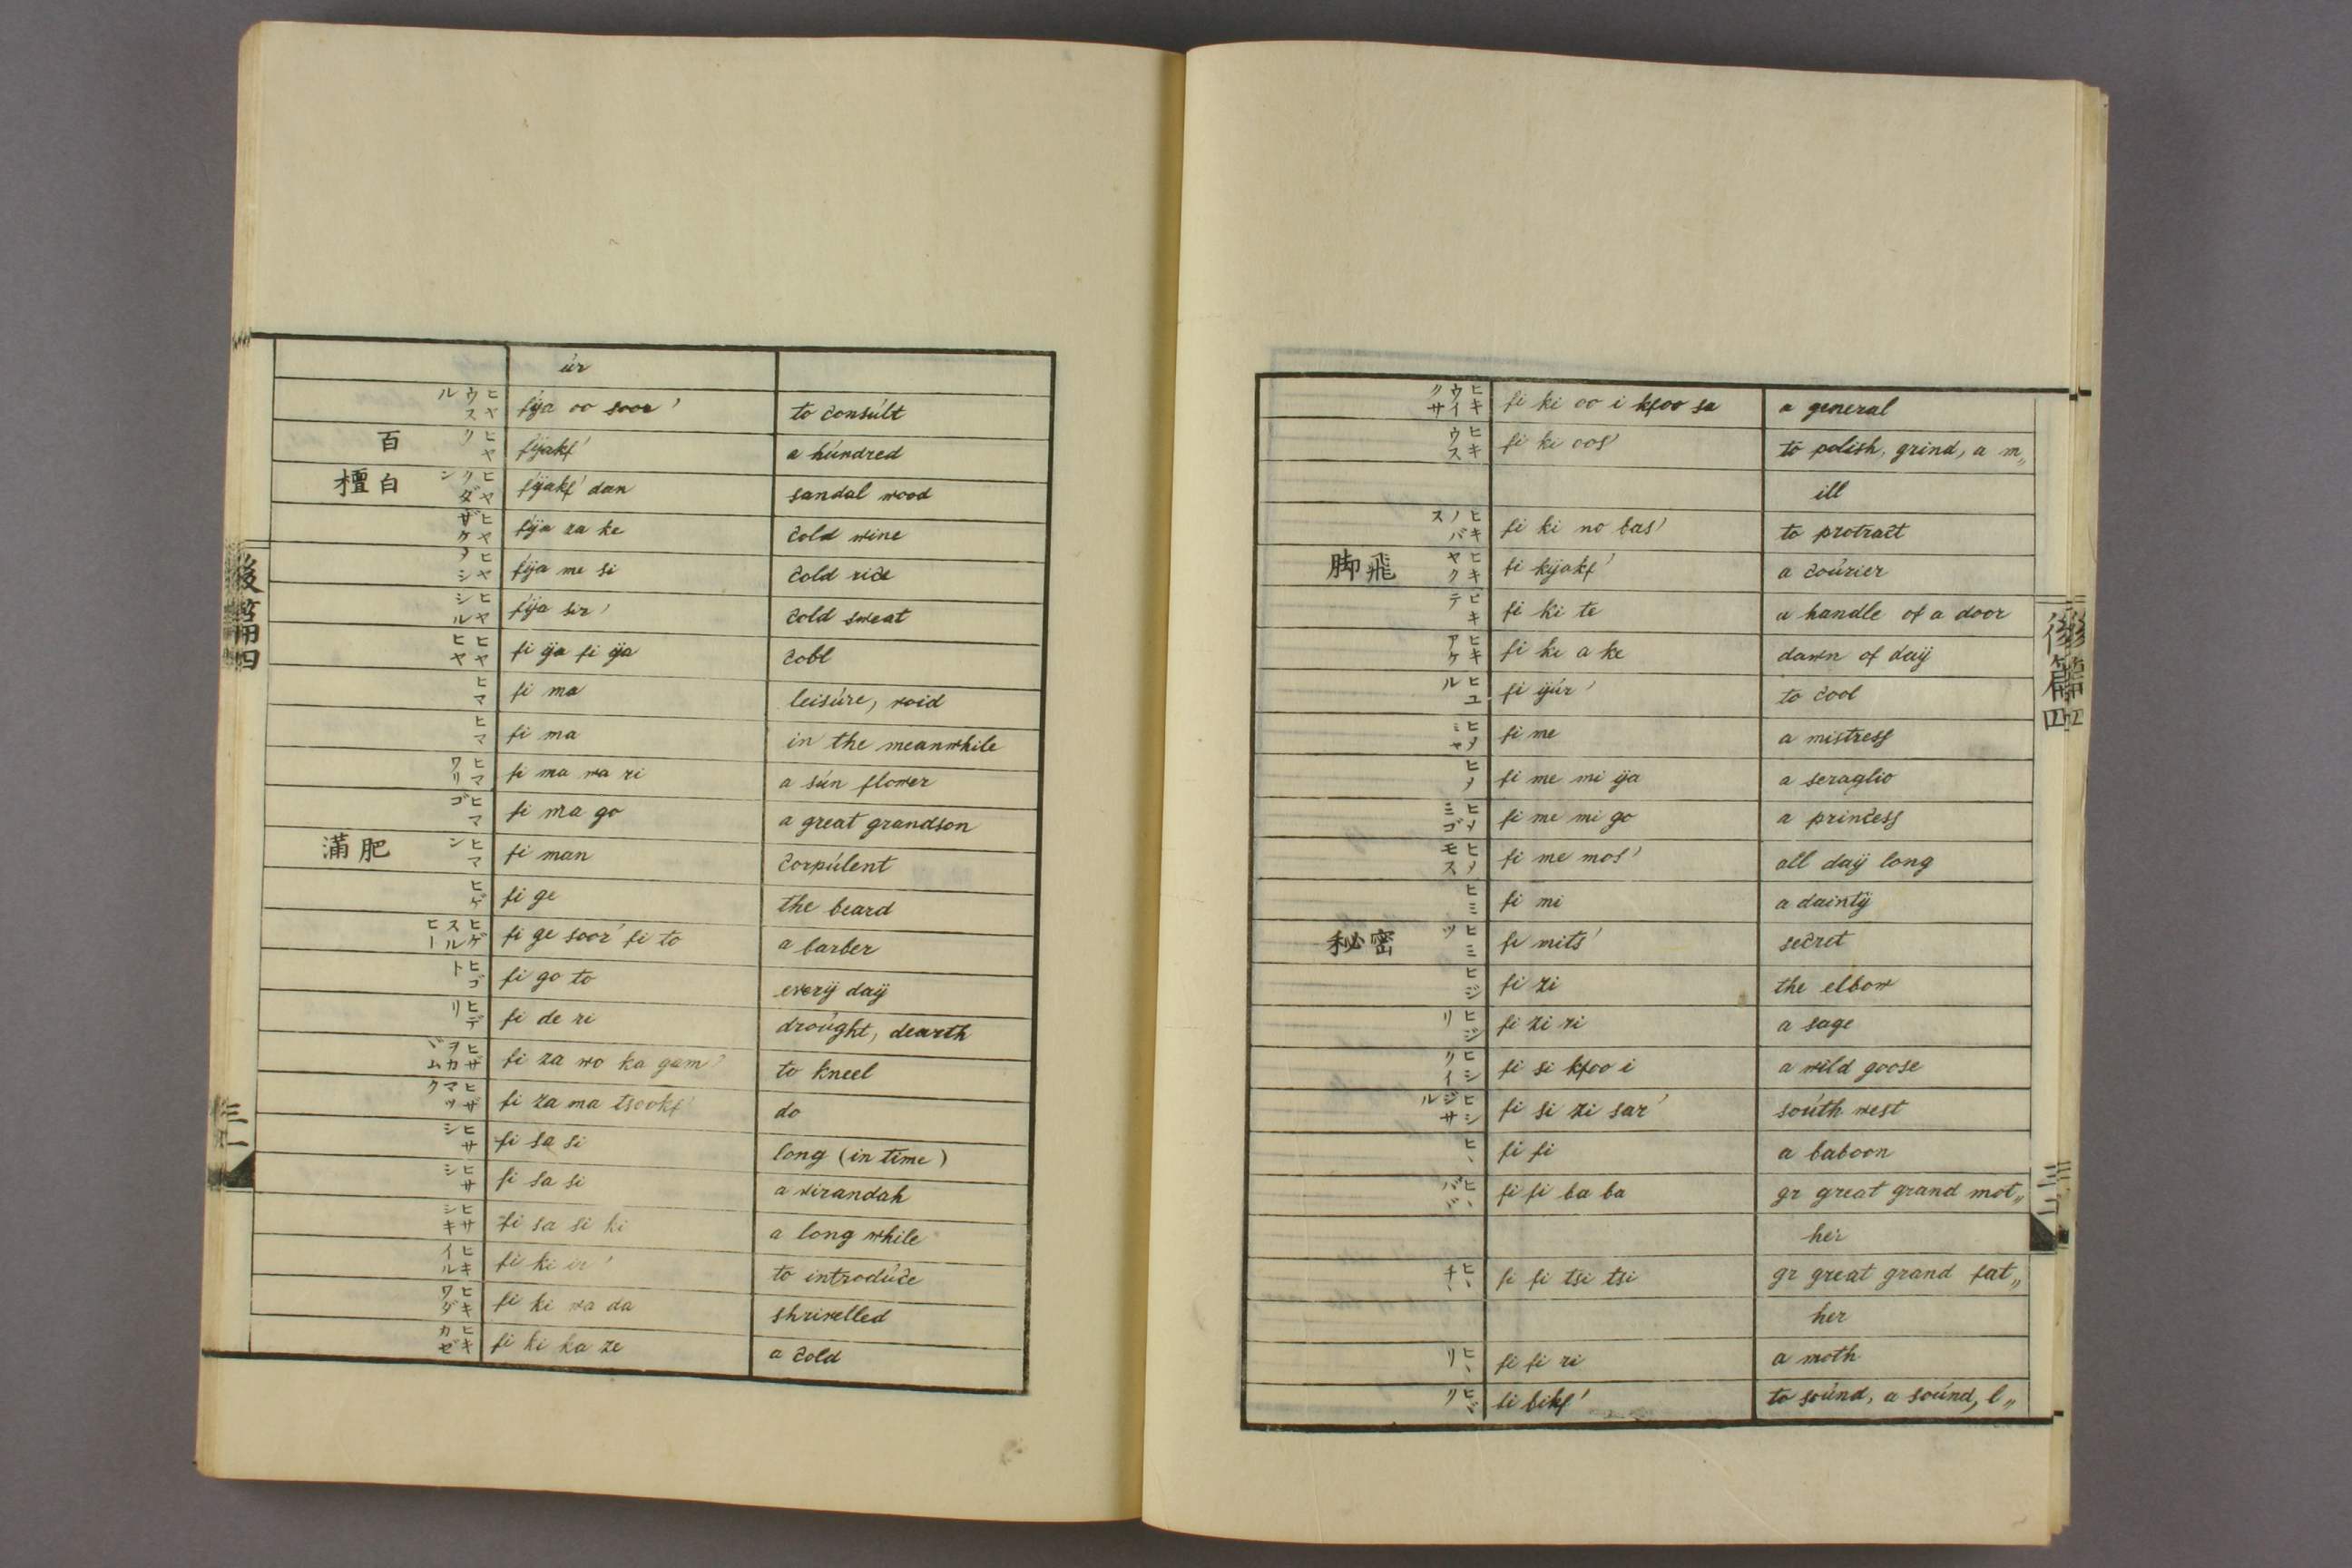 úr
ヒヤウスル fÿa oo soor' to consúlt
百 ヒヤク fÿakf' a húndred
白檀 ヒヤクダン fÿakf' dan sandal wood
ヒヤザケ fÿa za ke cold wine
ヒヤメシ fÿa me si cold rice
ヒヤシル fÿa sir' cold sweat
ヒヤヒヤ fi ÿa fi ÿa cobl
ヒマ fi ma leisúre, void
ヒマ fi ma in the meanwhile
ヒマワリ fi ma wa ri a sún flower
ヒマゴ fi ma go a great grandson
肥滿 ヒマン fi man corpúlent
ヒゲ fi ge the beard
ヒゲスルヒー fi ge soor' fi to a barber
ヒゴト fi go to everÿ daÿ
ヒデリ fi de ri droúght, dearth
ヒザヲカヾム fi za wo ka gam' to kneel
ヒザマツク fi za ma tsookf' do
ヒサシ fi sa si long (in time)
ヒサシ fi sa si a virandah
ヒサシキ fi sa si ki a long while
ヒキイル fi ki ir' to introdúce
ヒキワダ fi ki wa da shrivelled
ヒキカゼ fi ki ka ze a cold
後篇四
三一
ヒキウイクサ fi ki oo i kfoo sa a general
ヒキウス fi ki oos' to polish, grind, a m〃
ill
ヒキノバス fi ki no bas' to protract
飛脚 ヒキヤク fi kÿakf' a coúrier
ヒキテ fi ki te a handle of a door
ヒキアケ fi ki a ke dawn of daÿ
ヒユル fi ÿúr' to cool
ヒメミヤ fi me a mistress
ヒメ fi me mi ÿa a seraglio
ヒメミゴ fi me mi go a princess
ヒメモス fi me mos' all daÿ long
ヒミ fi mi a daintÿ
密秘 ヒミツ fi mits' secret
ヒジ fi zi the elbow
ヒジリ fi zi ri a sage
ヒシクイ fi si kfoo i a wild goose
ヒシジサル fi si zi sar' soúth west
ヒヽ fi fi a baboon
ヒヽバヾ fi fi ba ba gr great grand mot〃
her
ヒヽチヽ fi fi tsi tsi gr great grand fat〃
her
ヒヽリ fi fi ri a moth
ヒヾク fi bikf' to soúnd, a soúnd, l〃
後篇四